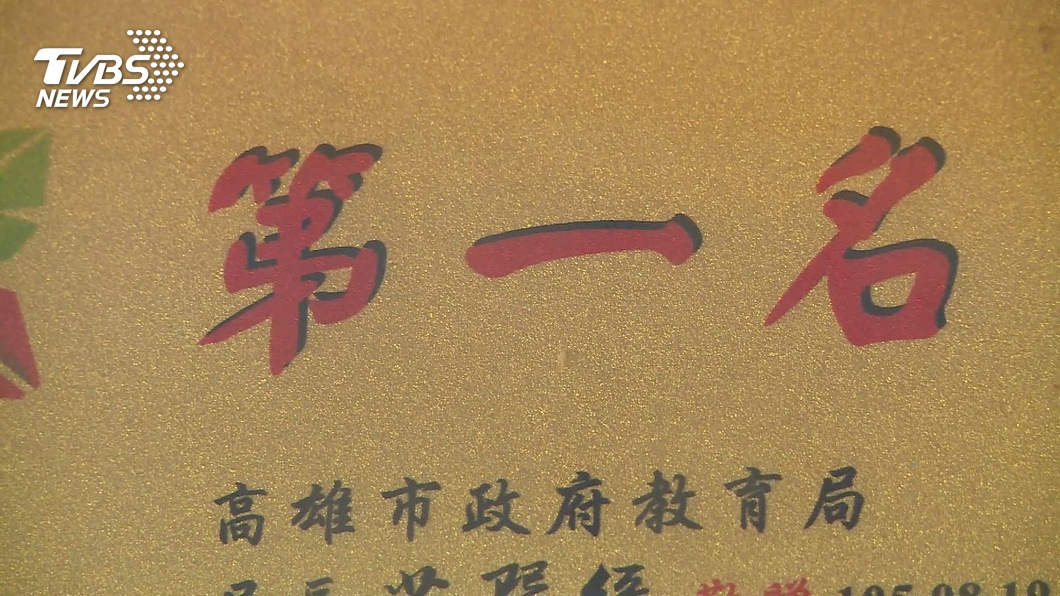 TVBS
NEWS
第一名
高雄市政府教育局